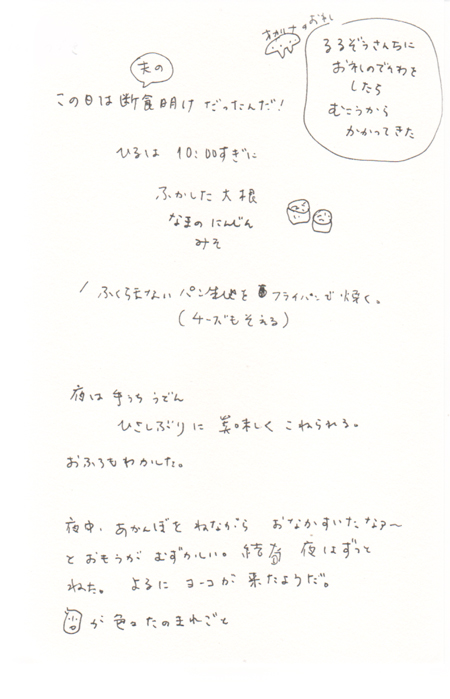 オカリナのおれい
るるぞうさんちに
おれいのでんわを
したら
むこうから
かかってきた
夫の
この日は断食明けだったんだ!
ひるは 10:00すぎに
ふかした大根
なまのにんじん
みそ
ふくらまない パン生地を フライパンで焼く。
(チーズもそえる)
夜は手うちうどん
ひさしぶりに 美味しくこねられる。
おふろもわかした。
夜中、あかんぼを ねながら おなかすいたなァ〜
とおもうが むずかしい。結局 夜はずっと
ねた。 よるに ヨーコが 来たようだ。
が